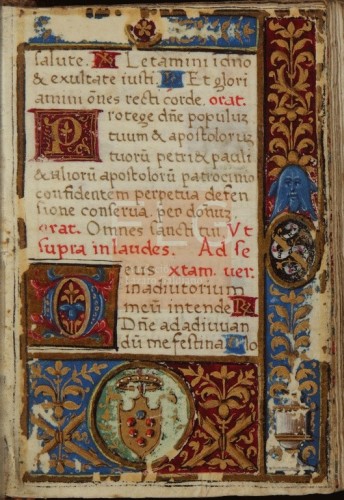 salute. R Letamini i dno
& exultate iusti. R Et glori
amini oēs recti corde. orat.
Protege dñe populuz
tuum & apostoloruz
tuoruʒ petri & pauli
& alioru apostoloruʒ patrocinio
confidentem perpetua defen
sione conserua. per doñuz.
orat. Omnes sancti tui, Ut
supra in laudes. Ad se
Deus xtam. uer.
in adiutorium
meū intende R
Dñe ad adiuuan
dū me festina